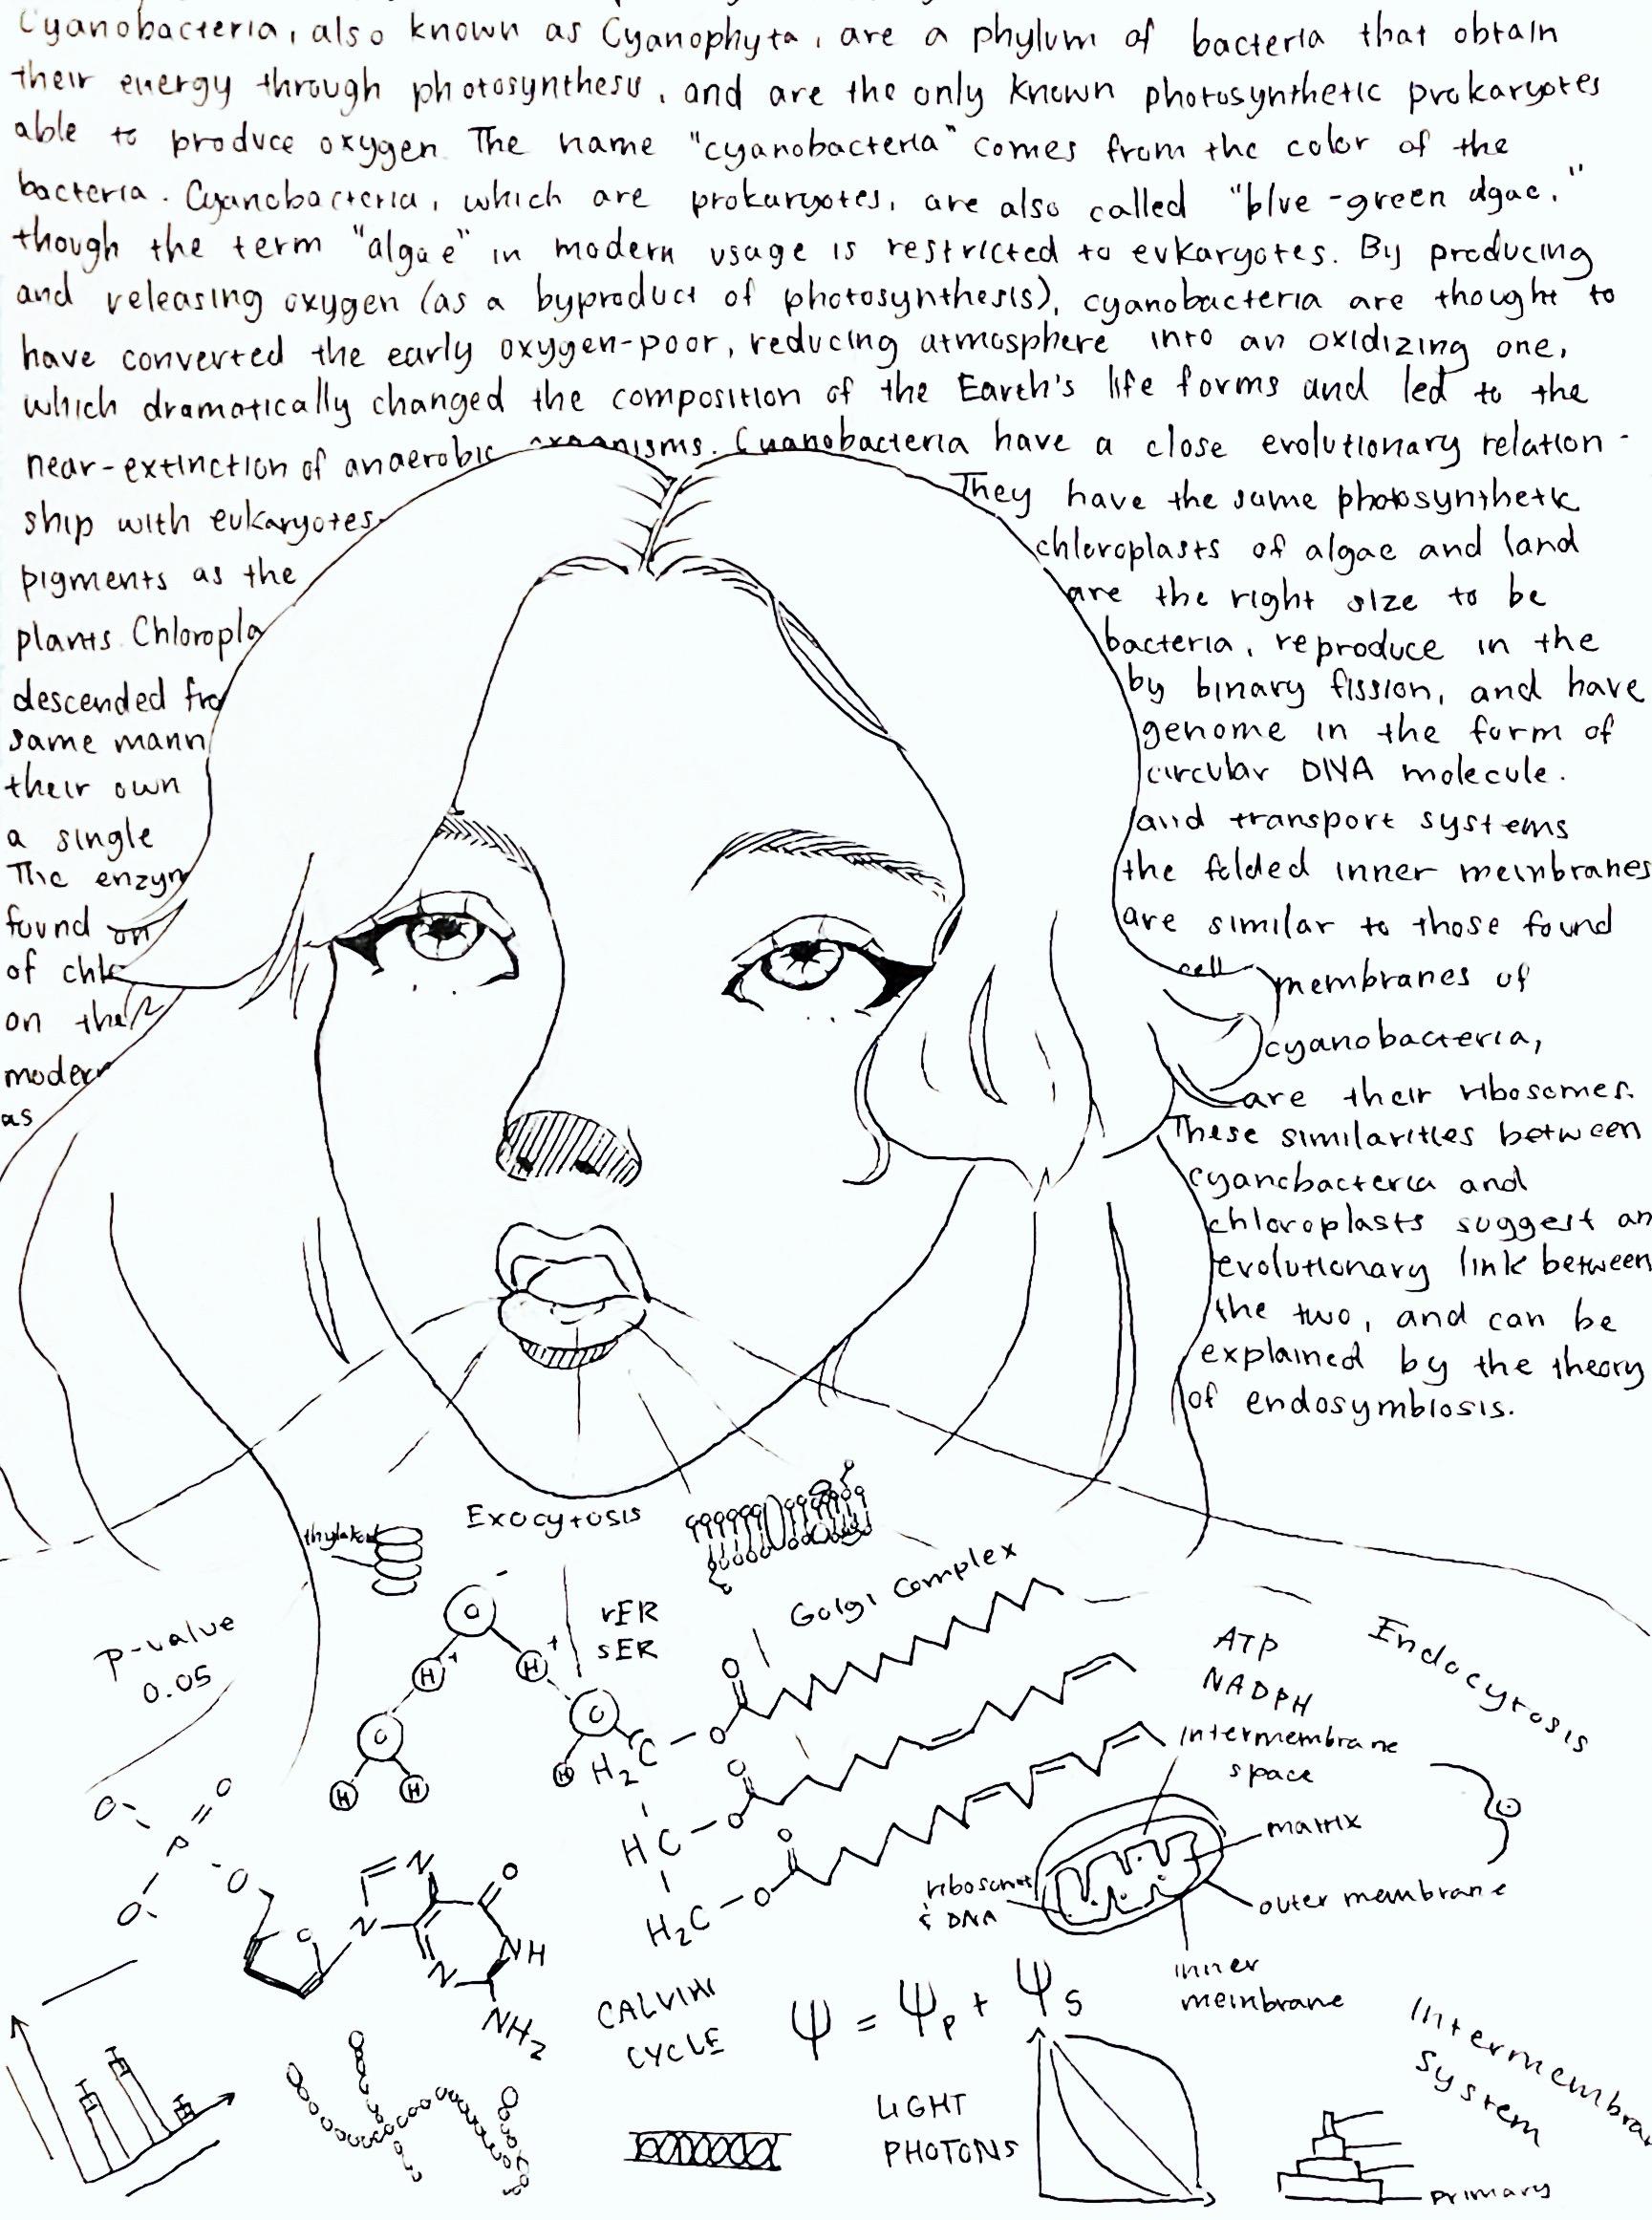 Cyanobacteria, also known as Cyanophyta, are a phylum of bacteria that obtain
their energy through photosynthesis, and are the only known photosynthetic prokaryotes
able to produce oxygen. The name "cyanobacteria" comes from the color of the
bacteria. Cyanobacteria, which are prokaryotes, are also called "blue-green algae,"
though the term "algae" in modern usage is restricted to eukaryotes. By producing
and releasing oxygen (as a byproduct of photosynthesis), cyanobacteria are thought to
have converted the early oxygen-poor, reducing atmosphere into an oxidizing one,
which dramatically changed the composition of the Earth's life forms and led to the
near-extinction of anaerobic organisms. Cyanobacteria have a close evolutionary relation-
ship with eukaryotes. They have the same photosynthetic
pigments as the chloroplasts of algae and land
plants. Chloropla are the right size to be
descended fro bacteria, reproduce in the
same mann by binary fission, and have
their own genome in the form of
a single circular DNA molecule.
The enzym and transport systems
found on the folded inner membranes
of chlo are similar to those found
on the cell membranes of
modern cyanobacteria,
as are their ribosomes.
These similarities between
cyanobacteria and
chloroplasts suggest an
evolutionary link between
the two, and can be
explained by the theory
of endosymbiosis.
Exocytosis
thylakoid
Golgi Complex
rER
sER
p-value
0.05
ATP
NADPH
Endocytosis
O -
H +
H +
O
H H
O
H
H2C - O
O
HC - O
O
H2C - O
O
intermembrane
space
matrix
ribosomes
& DNA
outer membrane
inner
membrane
O-
O
P
O-
O
O
N
N
O
NH
N
NH2
CALVIN
CYCLE
Ψ = Ψp + Ψs
Intermembra
System
LIGHT
PHOTONS
primary